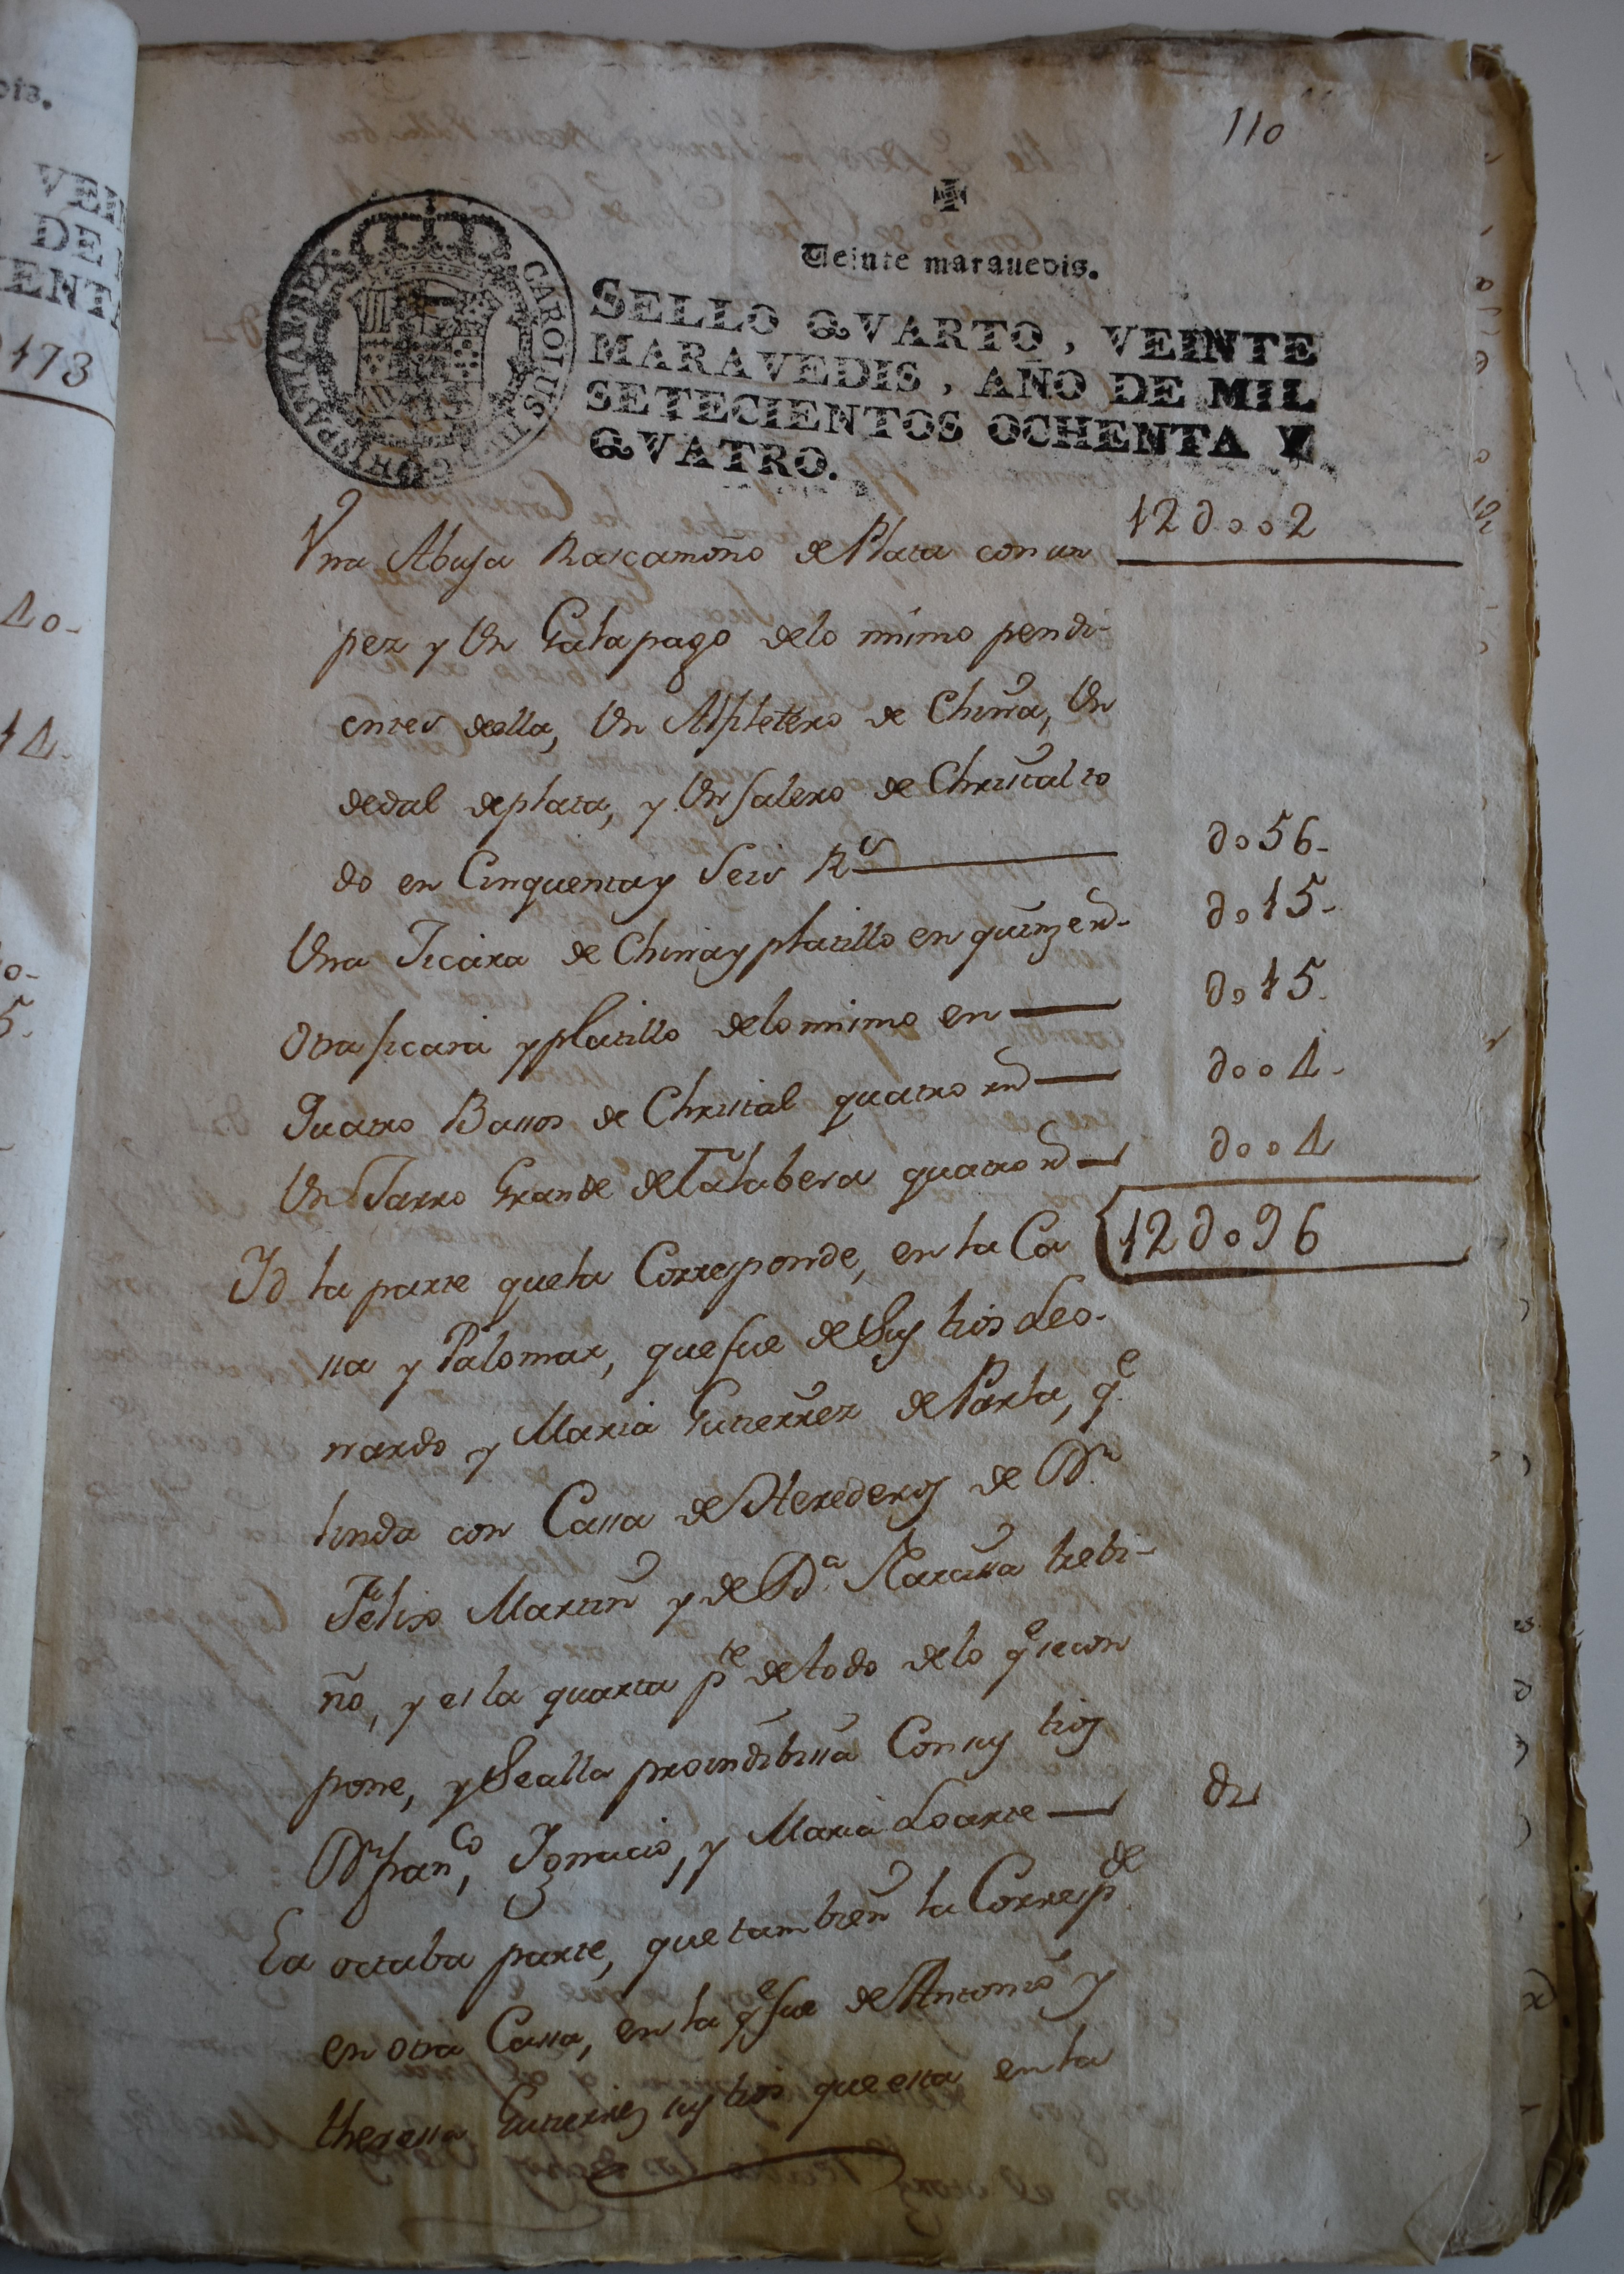 110
Veinte marauedis.
SELLO QVARTO, VEINTE
MARAVEDIS, AÑO DE MIL
SETECIENTOS OCHENTA Y
QVATRO.
CAROLUS III D G HISPANIAR REX
12 ∂ o o 2
Vna Abuja Rascamoño de Plata con un
pez y Un Galapago delo mimo pendi-
entes della, Un Alfiletero de China, Un
dedal deplata, y Un salero de Christal to
do en Cinquentay Seis Rs ∂ o 56 -
Una Jicara de Chinay platillo en quinze rd. ∂ o 15 -
Otra jicara yplatillo delomimo en ∂ o 15.
Quatro Bassos de Christal quatro rd ∂ o o 4 -
Un Jarro Grande deTalabera quatro rd ∂ o o 4
12 ∂ o 96
Yd la parte quela Corresponde, en la Ca
ssa y Palomar, quefue deSus tios Leo-
nardo y Maria Gutierrez deParla, qe
linda con Cassa deHerederos de Dn
Felix Martin y deDa Narcissa trebi-
ño, y esla quarta pte detodo delo qe secom
pone, ySealla proindibissa Consus tios
Dn franco, Ygnacio, y Maria Loarte
La octaba parte, quetambien la Correspde
en otra Cassa, en la qe fue deAntonio y
theressa Gutierrez sus tios queesta en la
VEN
DE
173